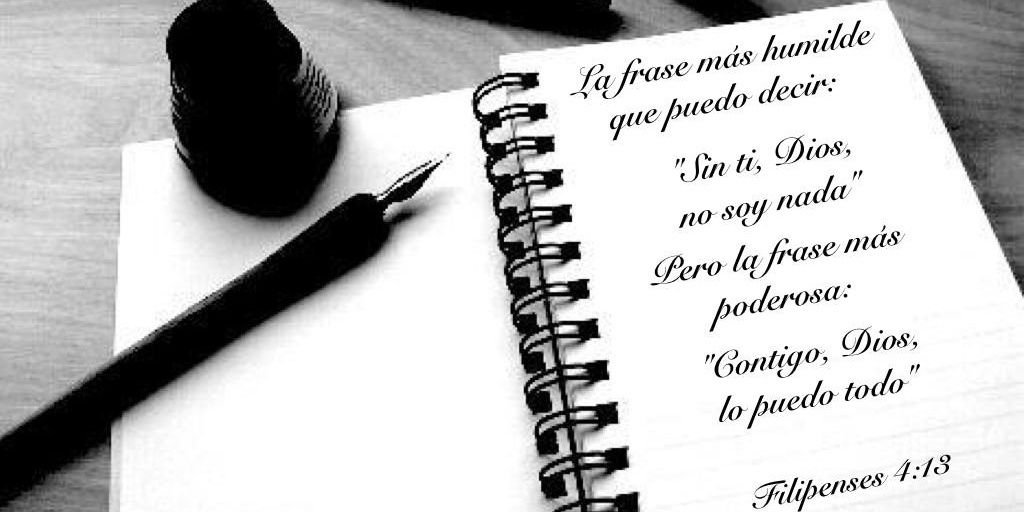 La frase más humilde
que puedo decir:
"Sin ti, Dios,
no soy nada"
Pero la frase más
poderosa:
"Contigo, Dios,
lo puedo todo"
Filipenses 4:13